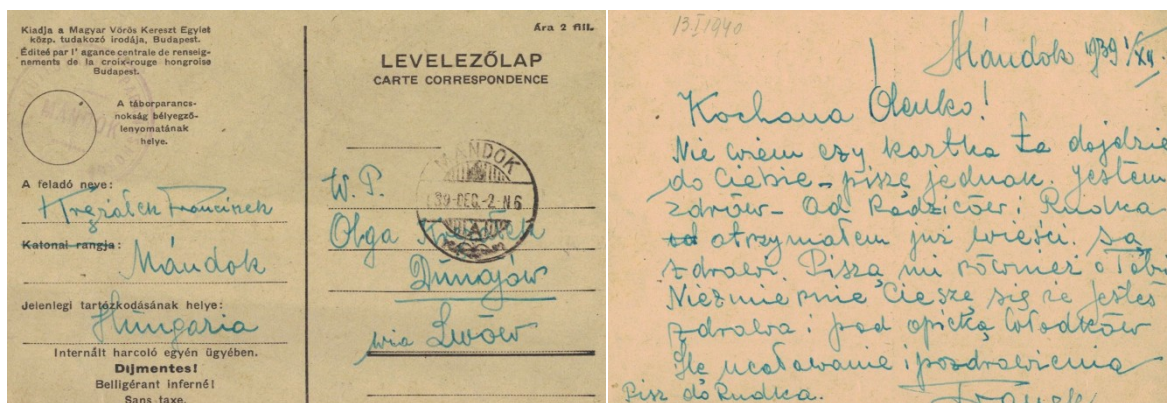 Kiadja a Magyar Vörös Kereszt Egylet
közp. tudakozó irodája, Budapest.
Éditeé par l' agance centrale de renseig-
nements de la croix-rouge hongroise
Budapest.
Ára 2 fill.
LEVELEZŐLAP
CARTE CORRESPONDENCE
A táborparancs-
nokság bélyegző-
lenyomatának
helye.
MÁNDOK
A feladó neve:
Franciszek
Katonai rangja:
Mándok
Jelenlegi tartózkodásának helye:
Hungaria
Internált harcoló egyén ügyében.
Díjmentes!
Belligérant inferné!
Sans taxe.
MÁNDOK
39 DEC. -2. N6
W. P.
Olga
Dunajów
via Lwów
13.I 1940
Mándok 1939 1/XII.
Kochana Olenko!
Nie wiem czy kartka ta dojdzie
do Ciebie - piszę jednak. Jestem
zdrów - Od Rodziców i Rudka
otrzymałem już wieści. Są
zdrowi. Piszą mi również o Tobi
Niezmiernie Cieszę się że jesteś
zdrowa i pod opieką Włodków
Ślę ucałowanie i pozdrowienia
Franek
Pisz do Rudka.